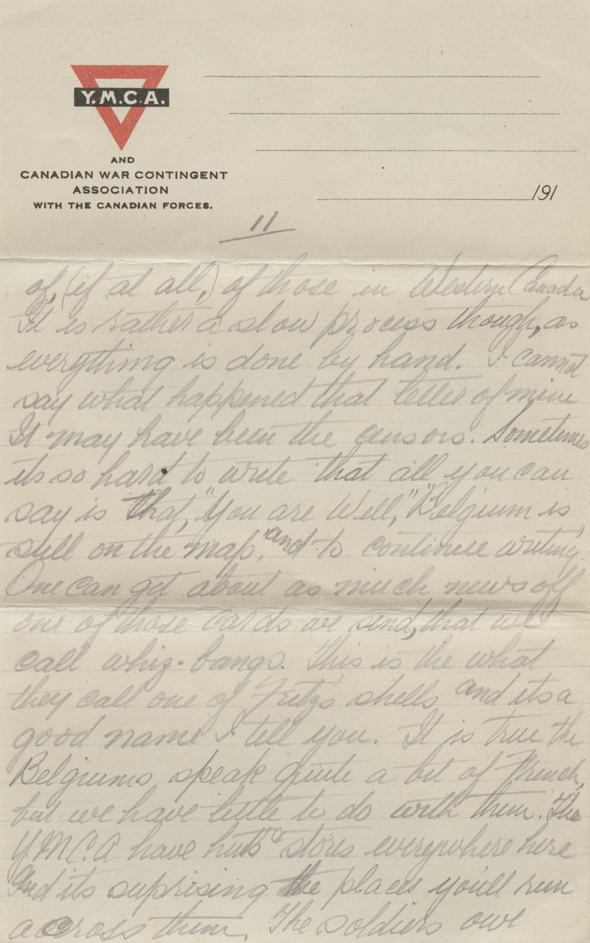 Y.M.C.A.
AND
CANADIAN WAR CONTINGENT
ASSOCIATION
WITH THE CANADIAN FORCES.
191
11
of, (if at all,) of those in Western Canada
It is rather a slow process though, as
everything is done by hand. I cannot
say what happened that letter of mine
It may have been the censors. Sometimes
its so hard to write that all you can
say is that, "You are Well," "Belgium is
still on the map," and to continue writing.
One can get about as much news off
one of those cards we send, that we
call whiz-bangs. This is the what
they call one of Fritz's shells and its a
good name I tell you. It is true the
Belgiums speak quite a bit of French,
but we have little to do with them. The
Y.M.C.A have huts & stores everywhere here
And its suprising the places you'll run
across them. The soldiers owe